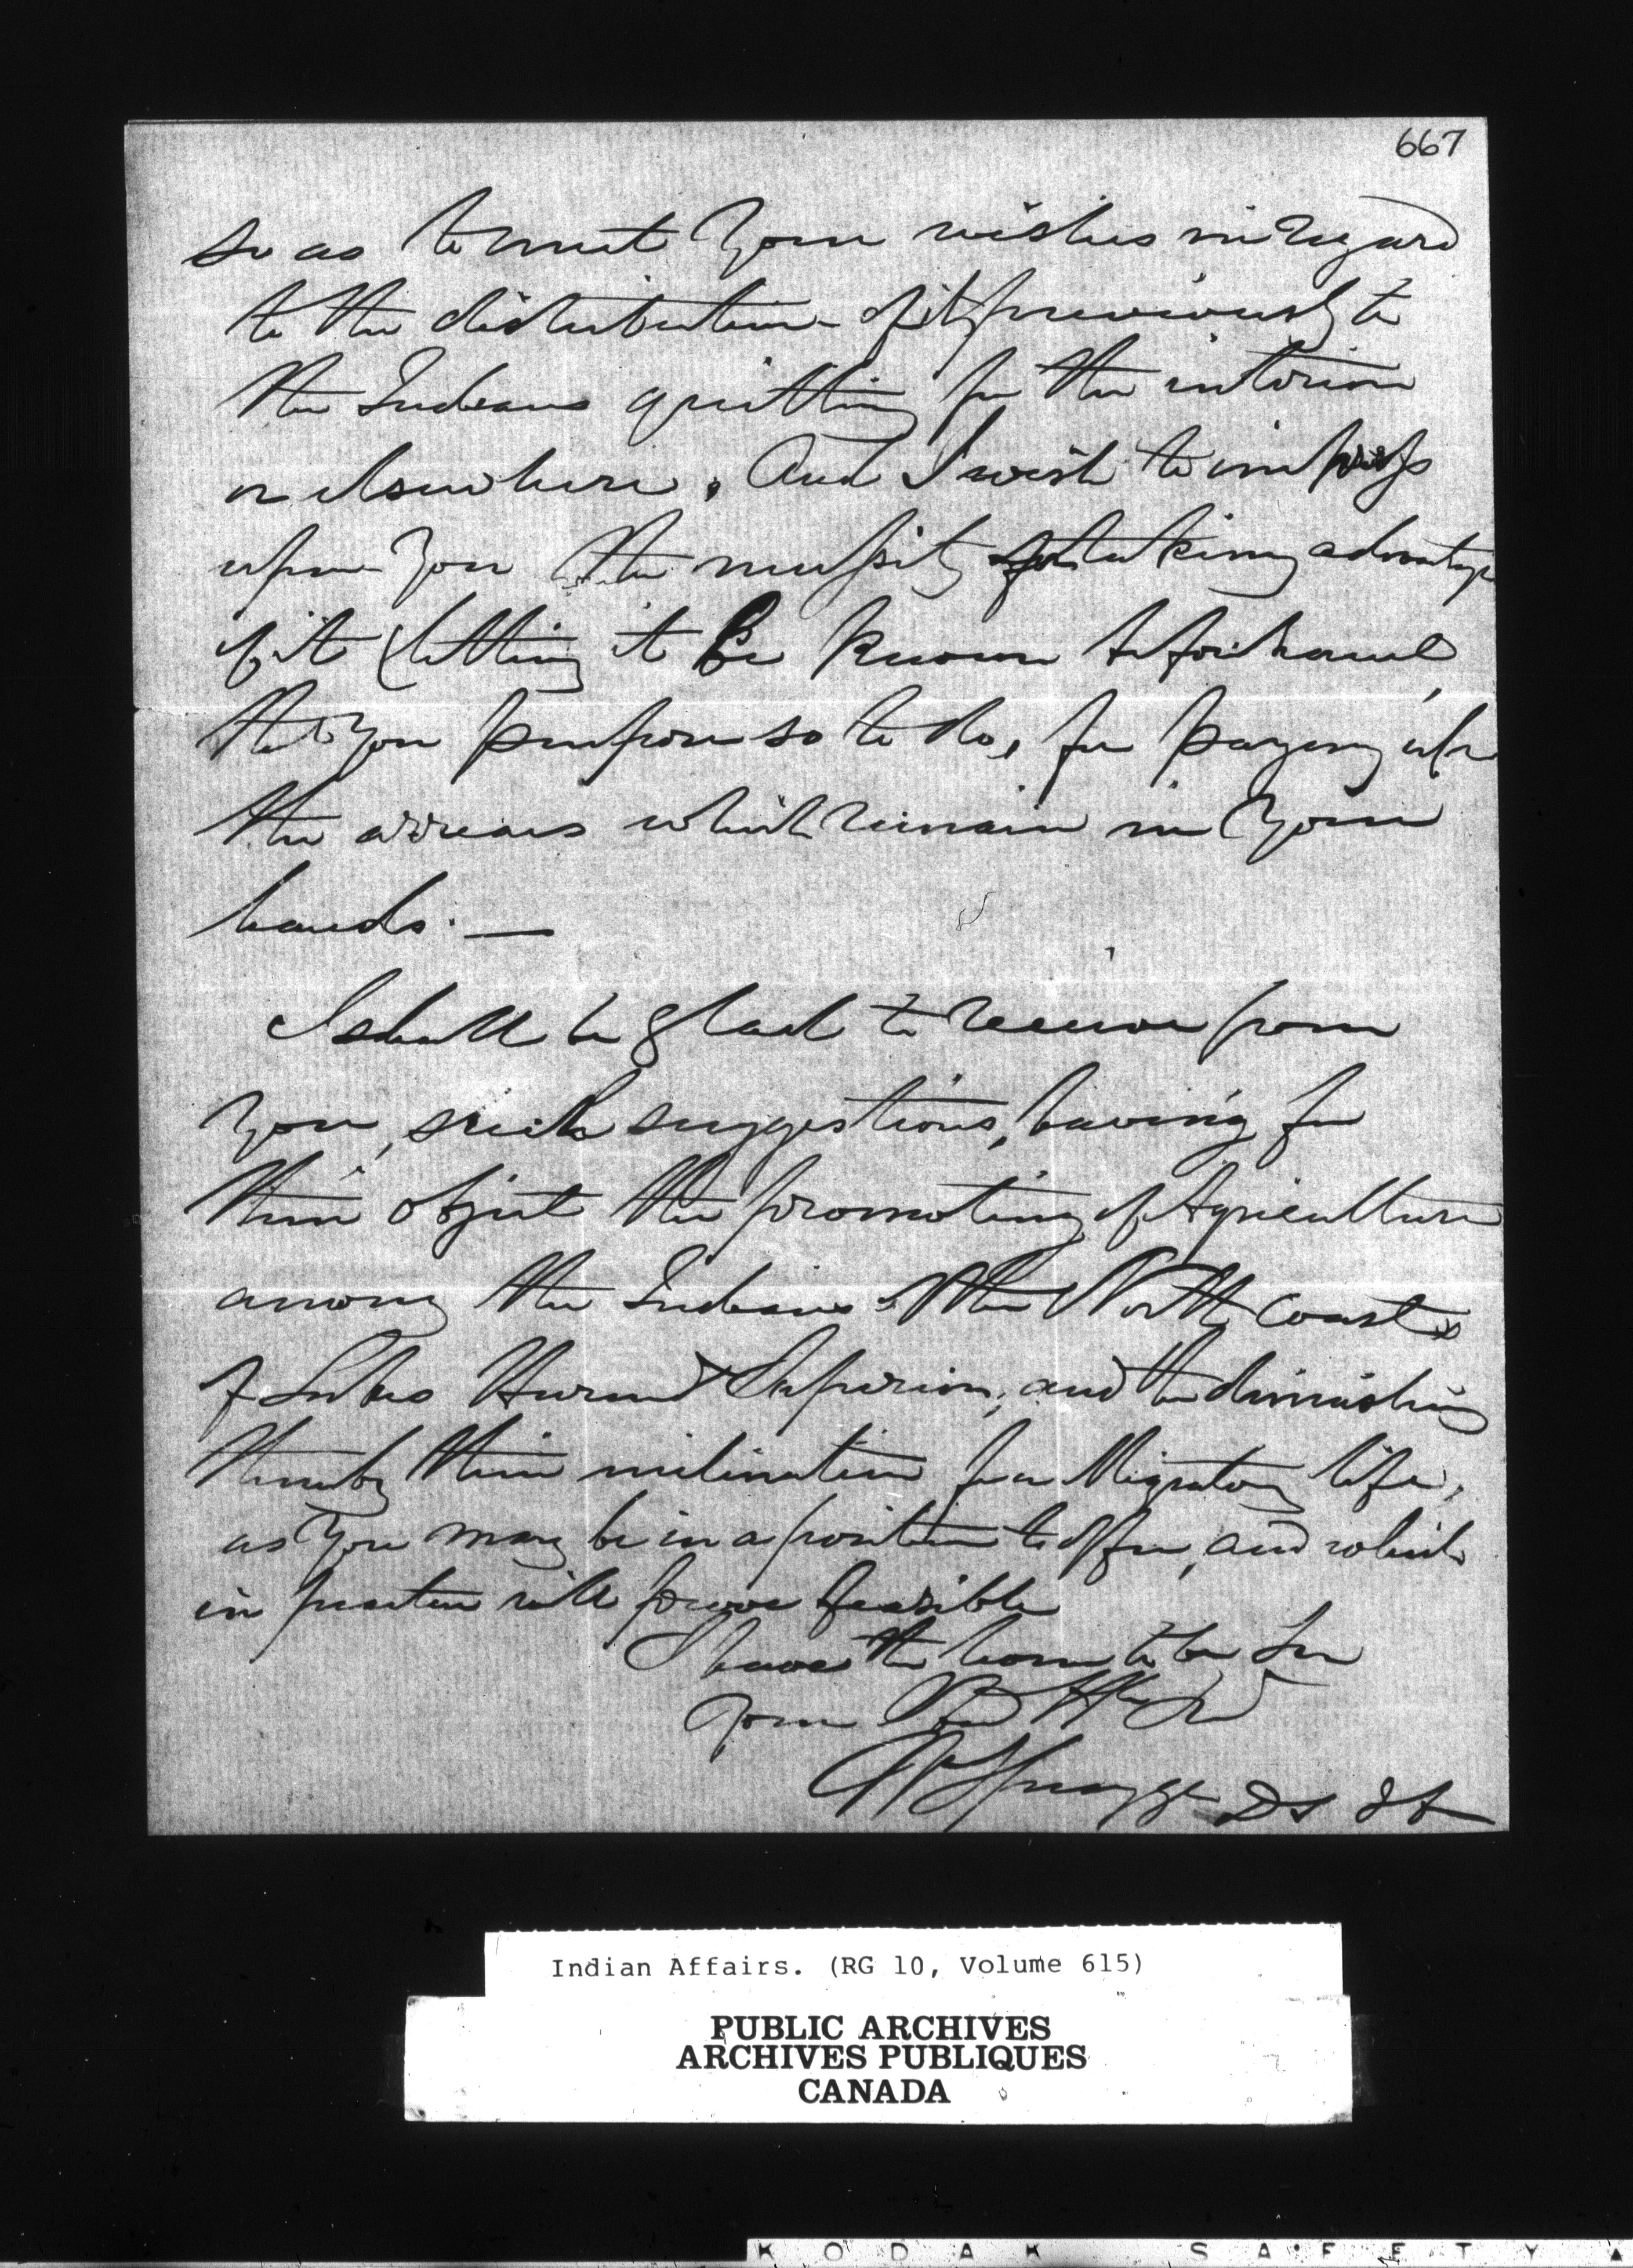 667
so as to meet your wishes in regard
to the distribution of it previously to
the Indians quitting for the interior
or elsewhere. And I wish to impress
upon you the necessity of taking advantage
of it (letting it be known beforehand
that you purpose so to do, for paying up
the arrears which remain in your
hands. —
I shall be glad to receive from
you, such suggestions, having for
their object the promoting of Agriculture
among the Indians the North Coasts
of Lakes Huron & Superior, and the diminishing
thereby their inclination for a Migratory life,
as you may be in a position to offer, and which
in practice will prove feasible
I have the honor to be Sir
Your
Spragge
Indian Affairs. (RG 10, Volume 615)
PUBLIC ARCHIVES
ARCHIVES PUBLIQUES
CANADA
KODAK SAFETY